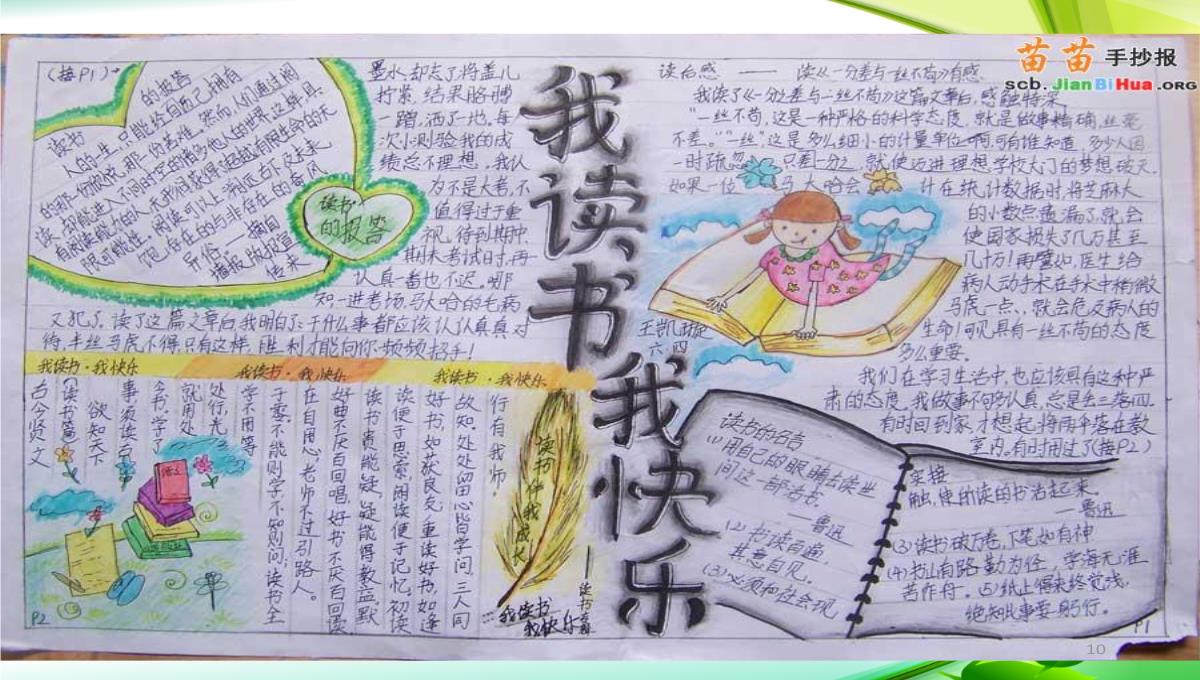 苗苗手抄报
scb.JianBiHua.ORG
我读书
我快乐
读后感 —— 读《一分之差与一丝不苟》有感
我读了《一分之差与一丝不苟》这篇文章后,感触特深。
"一丝不苟,这是一种严格的科学态度,就是做事精确,丝毫
不差。""一丝",这是多么细小的计量单位啊,可有谁知道,多少人因
一时疏忽,只差一分之,就使迈进理想学校大门的梦想破灭。
如果一位马大哈会计在统计数据时,将芝麻大
的小数点遗漏了,就会
使国家损失了几万甚至
几十万!再譬如,医生给
病人动手术在手术中稍微
马虎一点,就会危及病人的
生命!可见,具有一丝不苟的态度
多么重要。
王凯璇
六.四
我们在学习生活中,也应该具有这种严
肃的态度,我做事不够认真,总是丢三落四。
有时回到家才想起,将
落在教
室内。有时用过了(接P2)
读书的名言
(1)用自己的眼睛去读世
间这一部活书。
——鲁迅
(2)书读百遍,
其意自见。
(3)必须和社会现
实接
触,使所读的书活起来。
——鲁迅
(3)读书破万卷,下笔如有神
(4)书山有路勤为径,学海无涯
苦作舟。(5)纸上得来终觉浅,
绝知此事要躬行。
P1
(接P1)→
墨水,却忘了将盖儿
拧紧,结果胳膊
一蹭,洒了一地,每
次小测验我的成
绩总不理想,我认
为不是大考,不
值得过于重
视,待到期中、
期末考试时,再
认真一番也不迟。哪
知一进考场,马大哈的毛病
又犯了。读了这篇文章后,我明白了:干什么事都应该认认真真对
待,半丝马虎不得,只有这样,胜利才能向你频频招手!
读书
的报告
读书的报告
人的一生,只能给自己拥有
的那一份欢悦,那一份苦难。然而,人们通过阅
读,却能进入不同时空的诸多他人的世界,这样,具
有阅读能力的人,无形间获得了超越有限生命的无
限可能性。阅读可以上溯远古下及未来,
饱览存在的与非存在的奇风
异俗。——摘自
我读书·我快乐
我读书·我快乐
我读书·我快乐
行有我师。
故知。处处留心皆学问,三人同
好书,如获良友;重读好书,如逢
读便于思索,闲读便于记忆。初读
读书贵能疑,疑能得教益。默
好曲不厌百回唱,好书不厌百回读。
在自用心,老师不过引路人。
于零,不能则学,不知则问;读书全
学不用等
处行,光
就用处
会书,学了
事,须读古
欲知天下
《读书篇》
古今贤文
读书伴我成长
我读书
我快乐
P2
10